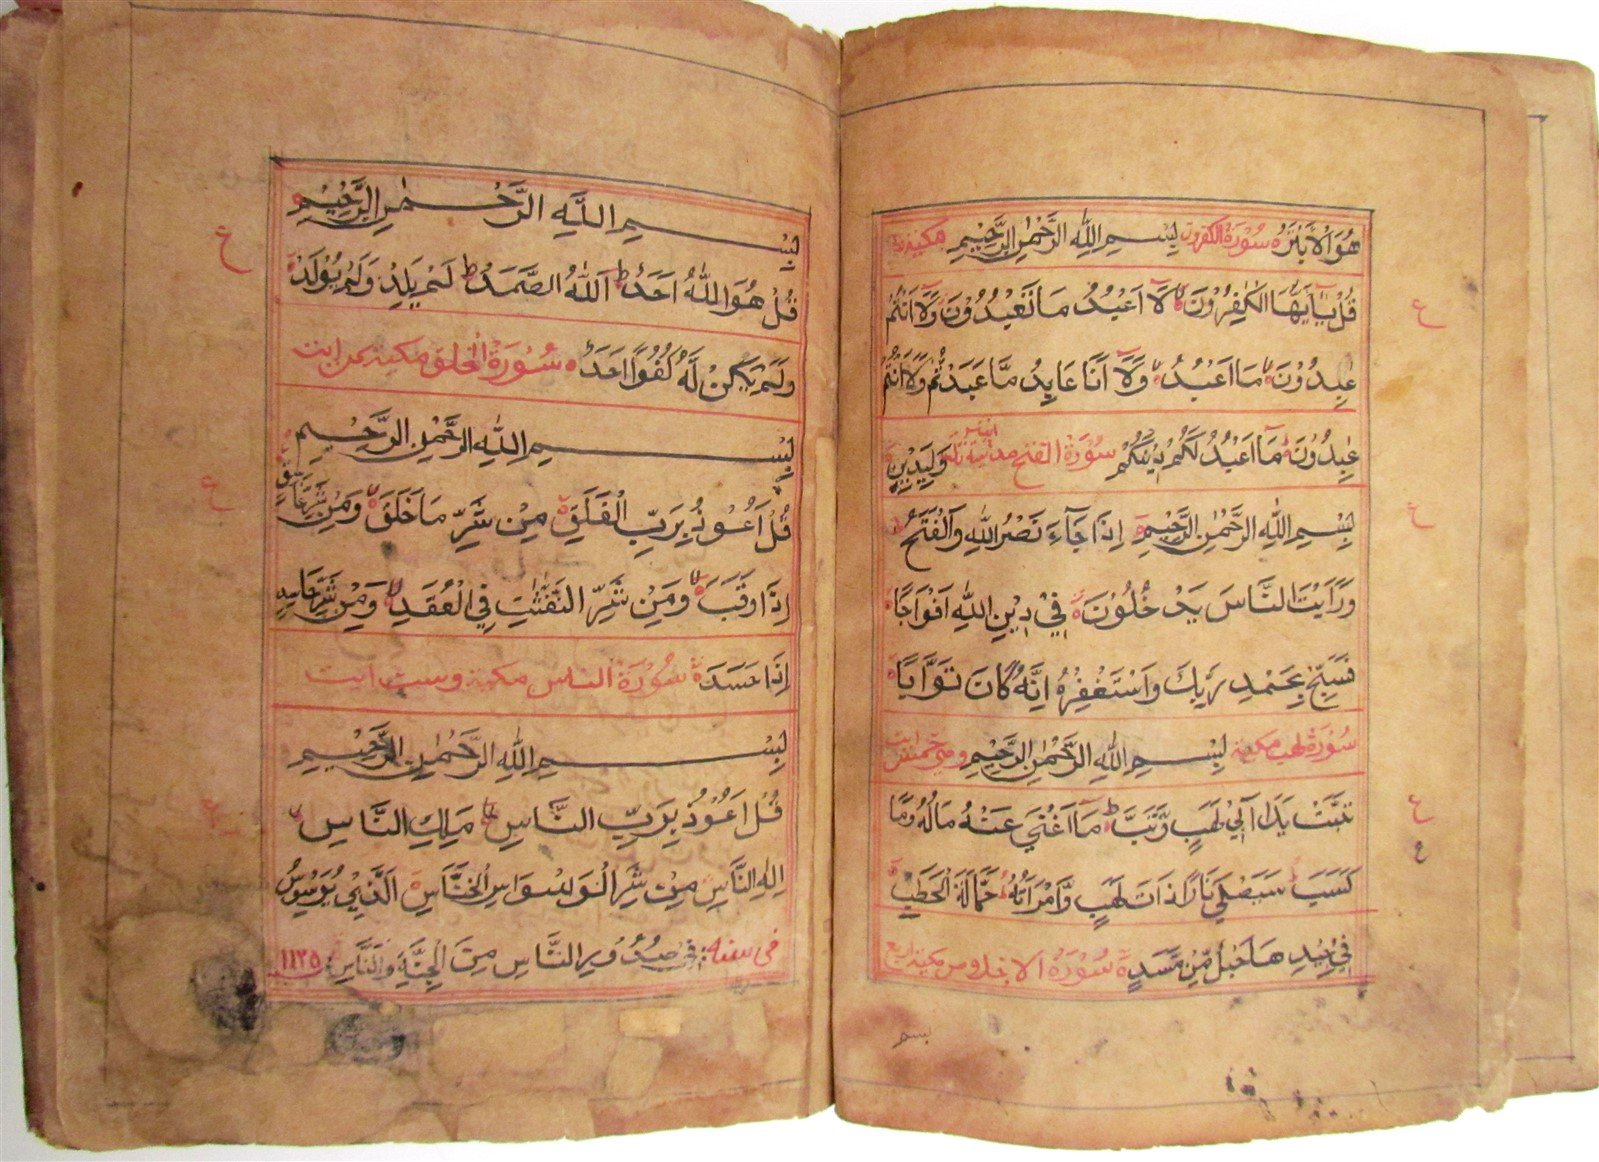 هُوَ الْاَبْتَرُ سُوْرَةُ الكٰفرون بِسْمِ اللّٰهِ الرَّحْمٰنِ الرَّحِيْمِ مكية
قُلْ يٰۤاَيُّهَا الْكٰفِرُوْنَ لَاۤ اَعْبُدُ مَا تَعْبُدُوْنَ وَلَاۤ اَنْتُمْ
عٰبِدُوْنَ مَاۤ اَعْبُدُ وَلَاۤ اَنَا عَابِدٌ مَّا عَبَدْتُّمْ وَلَاۤ اَنْتُمْ
عٰبِدُوْنَ مَاۤ اَعْبُدُ لَكُمْ دِيْنُكُمْ وَلِيَ دِيْنِ سُوْرَةُ الفتح مدنية
بِسْمِ اللّٰهِ الرَّحْمٰنِ الرَّحِيْمِ اِذَا جَآءَ نَصْرُ اللّٰهِ وَالْفَتْحُ
وَرَاَيْتَ النَّاسَ يَدْخُلُوْنَ فِيْ دِيْنِ اللّٰهِ اَفْوَاجًا
فَسَبِّحْ بِحَمْدِ رَبِّكَ وَاسْتَغْفِرْهُ اِنَّهٗ كَانَ تَوَّابًا
سُوْرَةُ لهب مكية بِسْمِ اللّٰهِ الرَّحْمٰنِ الرَّحِيْمِ وهى خمس ايت
تَبَّتْ يَدَاۤ اَبِيْ لَهَبٍ وَّتَبَّ مَاۤ اَغْنٰى عَنْهُ مَالُهٗ وَمَا
كَسَبَ سَيَصْلٰى نَارًا ذَاتَ لَهَبٍ وَّامْرَاَتُهٗ حَمَّالَةَ الْحَطَبِ
فِيْ جِيْدِهَا حَبْلٌ مِّنْ مَّسَدٍ سُوْرَةُ الاخلاص مكية اربع
بسم
بِسْمِ اللّٰهِ الرَّحْمٰنِ الرَّحِيْمِ
قُلْ هُوَ اللّٰهُ اَحَدٌ اَللّٰهُ الصَّمَدُ لَمْ يَلِدْ وَلَمْ يُوْلَدْ
وَلَمْ يَكُنْ لَّهٗ كُفُوًا اَحَدٌ سُوْرَةُ الخلق مكية خمس ايت
بِسْمِ اللّٰهِ الرَّحْمٰنِ الرَّحِيْمِ
قُلْ اَعُوْذُ بِرَبِّ الْفَلَقِ مِنْ شَرِّ مَا خَلَقَ وَمِنْ شَرِّ غَاسِقٍ
اِذَا وَقَبَ وَمِنْ شَرِّ النَّفّٰثٰتِ فِي الْعُقَدِ وَمِنْ شَرِّ حَاسِدٍ
اِذَا حَسَدَ سُوْرَةُ الناس مكية وست ايت
بِسْمِ اللّٰهِ الرَّحْمٰنِ الرَّحِيْمِ
قُلْ اَعُوْذُ بِرَبِّ النَّاسِ مَلِكِ النَّاسِ
اِلٰهِ النَّاسِ مِنْ شَرِّ الْوَسْوَاسِ الْخَنَّاسِ الَّذِيْ يُوَسْوِسُ
فى سنه فِيْ صُدُوْرِ النَّاسِ مِنَ الْجِنَّةِ وَالنَّاسِ ١١٢٥